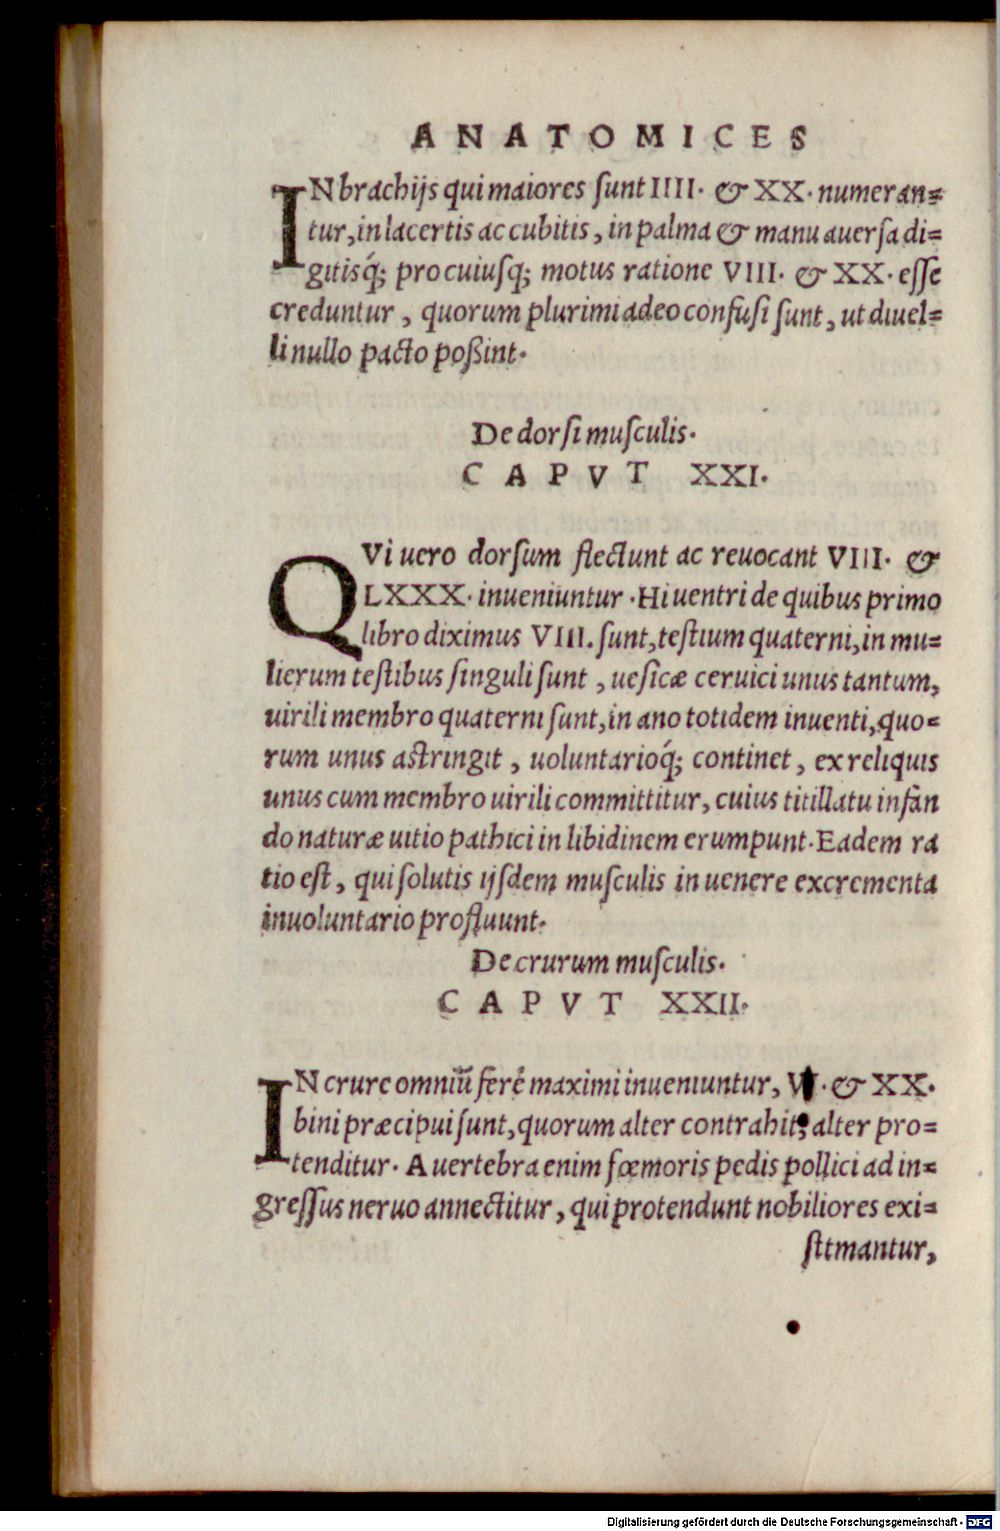 ANATOMICES
IN brachijs qui maiores sunt IIII. & XX. numeran=
tur, in lacertis ac cubitis, in palma & manu auersa di=
gitisq́; pro cuiusq; motus ratione VIII. & XX. esse
creduntur, quorum plurimi adeo confusi sunt, ut diuel=
li nullo pacto poßint.
De dorsi musculis.
CAPVT XXI.
QVi uero dorsum flectunt ac reuocant VIII. &
LXXX. inueniuntur. Hi uentri de quibus primo
libro diximus VIII. sunt, testium quaterni, in mu=
lierum testibus singuli sunt, uesicæ ceruici unus tantum,
uirili membro quaterni sunt, in ano totidem inuenti, quo=
rum unus astringit, uoluntarioq́; continet, ex reliquis
unus cum membro uirili committitur, cuius titillatu infan
do naturæ uitio pathici in libidinem erumpunt. Eadem ra
tio est, qui solutis ijsdem musculis in uenere excrementa
inuoluntario profluunt.
De crurum musculis.
CAPVT XXII.
IN crure omniū ferè maximi inueniuntur, & XX.
bini præcipui sunt, quorum alter contrahit, alter pro=
tenditur. A uertebra enim fœmoris pedis pollici ad in=
gressus neruo annectitur, qui protendunt nobiliores exi=
stimantur,
Digitalisierung gefördert durch die Deutsche Forschungsgemeinschaft - DFG